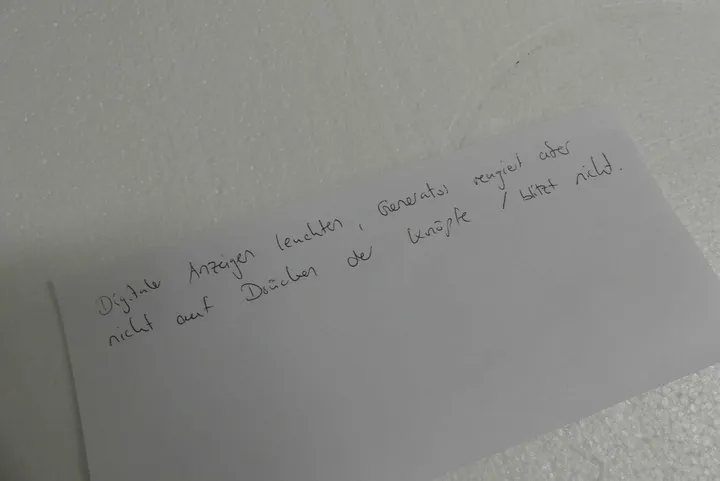 Digitale Anzeigen leuchten, Generator reagiert aber
nicht auf Drücken der Knöpfe / blitzt nicht.